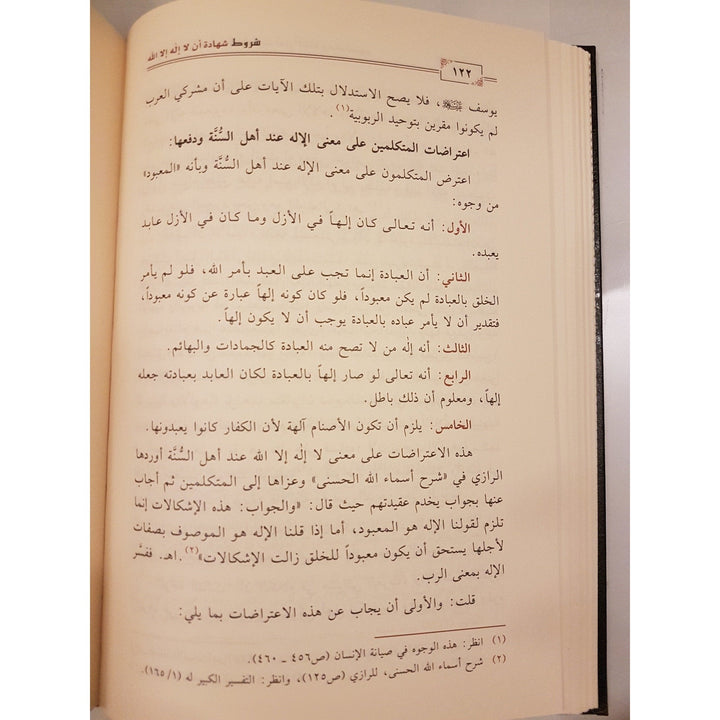 شروط شهادة أن لا إله إلا الله
١٢٢
يوسف ﷺ، فلا يصح الاستدلال بتلك الآيات على أن مشركي العرب
لم يكونوا مقرين بتوحيد الربوبية(١).
اعتراضات المتكلمين على معنى الإله عند أهل السُّنَّة ودفعها:
اعترض المتكلمون على معنى الإله عند أهل السُّنَّة وبأنه «المعبود»
من وجوه:
الأول: أنه تعالى كان إلهاً في الأزل وما كان في الأزل عابد
يعبده.
الثاني: أن العبادة إنما تجب على العبد بأمر الله، فلو لم يأمر
الخلق بالعبادة لم يكن معبوداً، فلو كان كونه إلهاً عبارة عن كونه معبوداً،
فتقدير أن لا يأمر عباده بالعبادة يوجب أن لا يكون إلهاً.
الثالث: أنه إله من لا تصح منه العبادة كالجمادات والبهائم.
الرابع: أنه تعالى لو صار إلهاً بالعبادة لكان العابد بعبادته جعله
إلهاً، ومعلوم أن ذلك باطل.
الخامس: يلزم أن تكون الأصنام آلهة لأن الكفار كانوا يعبدونها.
هذه الاعتراضات على معنى لا إله إلا الله عند أهل السُّنَّة أوردها
الرازي في «شرح أسماء الله الحسنى» وعزاها إلى المتكلمين ثم أجاب
عنها بجواب يخدم عقيدتهم حيث قال: «والجواب: هذه الإشكالات إنما
تلزم لقولنا الإله هو المعبود، أما إذا قلنا الإله هو الموصوف بصفات
لأجلها يستحق أن يكون معبوداً للخلق زالت الإشكالات»(٢).اهـ. ففسَّر
الإله بمعنى الرب.
قلت: والأولى أن يجاب عن هذه الاعتراضات بما يلي:
(١) انظر: هذه الوجوه في صيانة الإنسان (ص٤٥٦ ـ ٤٦٠).
(٢) شرح أسماء الله الحسنى، للرازي (ص١٢٥)، وانظر: التفسير الكبير له (١/ ١٦٥).